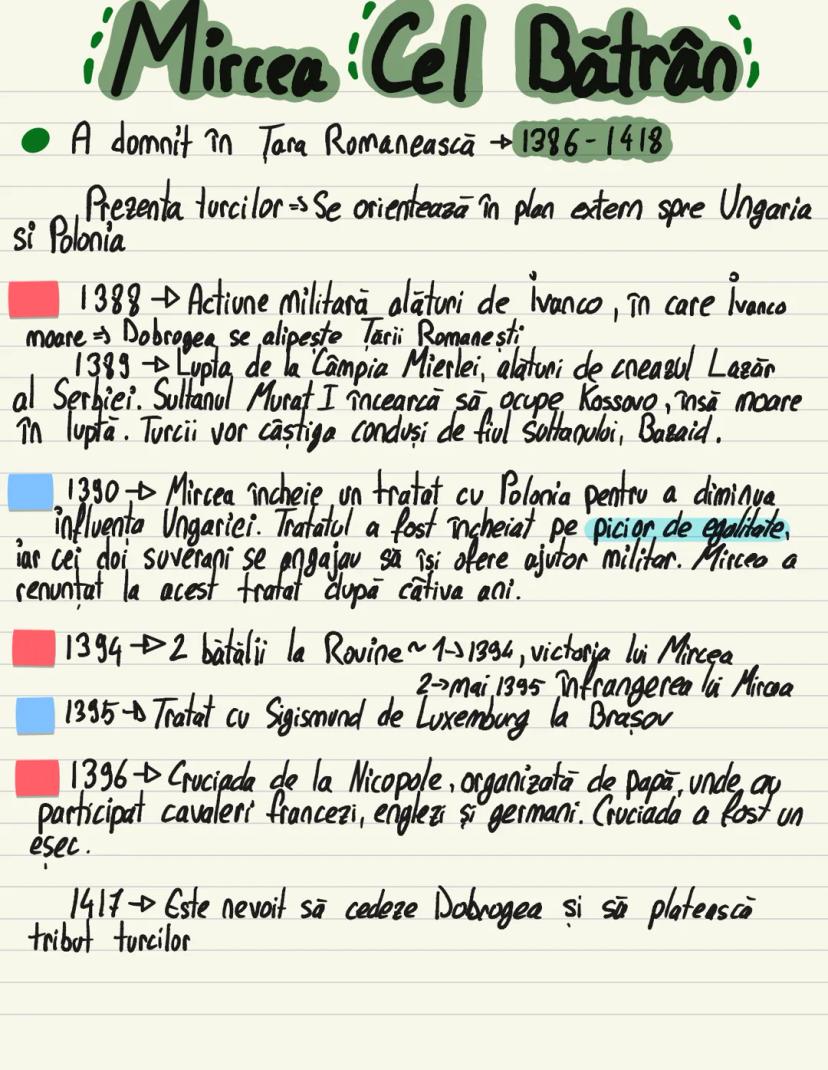 Mircea Cel Bătrân
A domnit în Țara Romanească → 1386-1418
Prezenta turcilor => Se orientează în plan extern spre Ungaria
si Polonia
1388 → Actiune militară alături de Ivanco, în care Ivanco
moare => Dobrogea se alipește Țării Romanești
1389 → Lupta de la Câmpia Mierlei, alături de cneazul Lazăr
al Serbiei. Sultanul Murat I încearcă să ocupe Kossovo, însă moare
în luptă. Turcii vor câștiga conduși de fiul sultanului, Bazaid.
1390 → Mircea încheie un tratat cu Polonia pentru a diminua
influența Ungariei. Tratatul a fost încheiat pe picior de egalitate,
iar cei doi suverani se angajau să își ofere ajutor militar. Mircea a
renunțat la acest tratat după câtiva ani.
1394 → 2 bătălii la Rovine ~ 1→1394, victoria lui Mircea
2→mai 1395 înfrangerea lui Mircea
1395 → Tratat cu Sigismund de Luxemburg la Brașov
1396 → Cruciada de la Nicopole, organizată de papă, unde au
participat cavaleri francezi, englezi și germani. Cruciada a fost un
eșec.
1417 → Este nevoit să cedeze Dobrogea și să platească
tribut turcilor